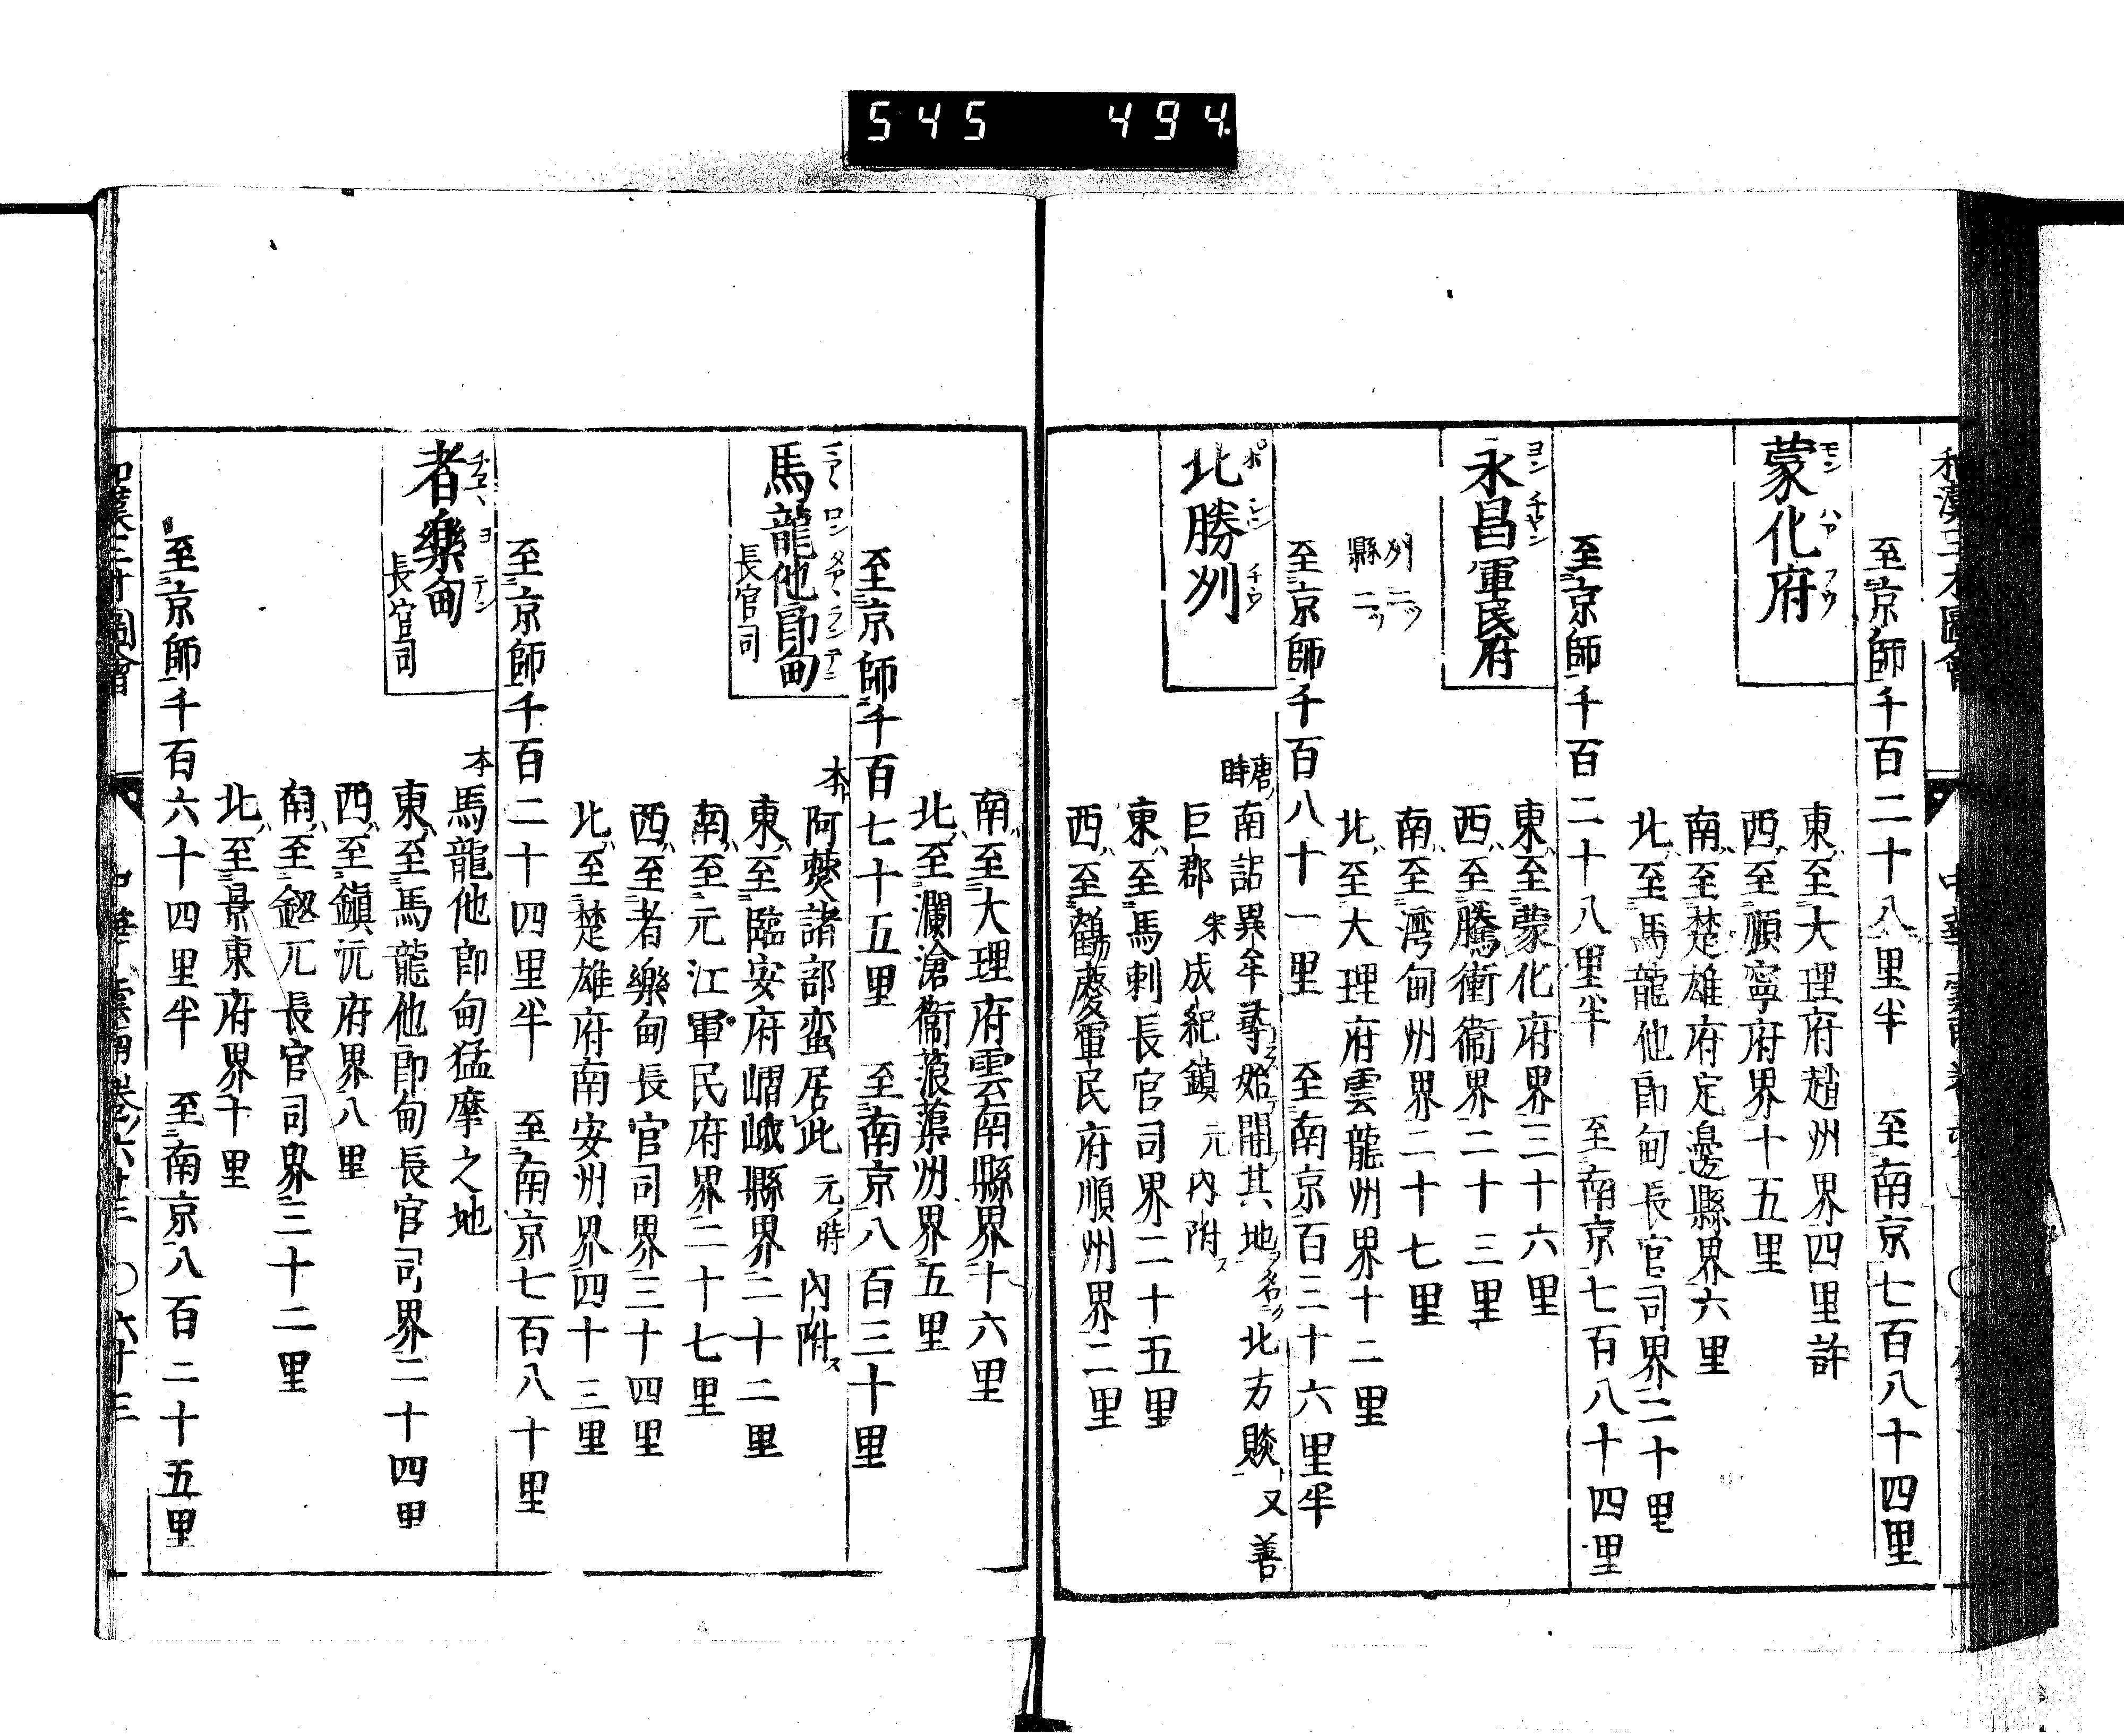 545 494
和漢三才圖會
至京師千百二十八里半 至南京七百八十四里
蒙化府
モン ハア フウ
東ハ至大理府趙州界四里許
西ハ至順寧府界十五里
南ハ至楚雄府定邊縣界六里
北ハ至馬龍他郎甸長官司界二十里
至京師千百二十八里半 至南京七百八十四里
永昌軍民府
ヨン チヤン
東ハ至蒙化府界三十六里
西ハ至騰衝衞界二十三里
南ハ至湾甸州界二十七里
北ハ至大理府雲龍州界十二里
州二ツ
縣二ツ
至京師千百八十一里 至南京百三十六里半
北勝州
唐ノ時南詔異牟尋始開其地名北方賧又善
巨郡 宋成紀鎮 元内附ス
東ハ至馬剌長官司界二十五里
西ハ至鶴慶軍民府順州界二里
南ハ至大理府雲南縣界十六里
北ハ至瀾滄衞蒗蕖州界五里
至京師千百七十五里 至南京八百三十里
馬龍他郎甸
長官司
本阿僰諸部蛮居此 元ノ時内附ス
東ハ至臨安府嶍峨縣界二十二里
南ハ至元江軍民府界二十七里
西ハ至者樂甸長官司界三十四里
北ハ至楚雄府南安州界四十三里
至京師千百二十四里半 至南京七百八十里
者樂甸
長官司
本馬龍他郎甸猛摩之地
東ハ至馬龍他郎甸長官司界二十四里
西ハ至鎮沅府界八里
南ハ至鈒兀長官司界三十二里
北ハ至景東府界十里
至京師千百六十四里半 至南京八百二十五里